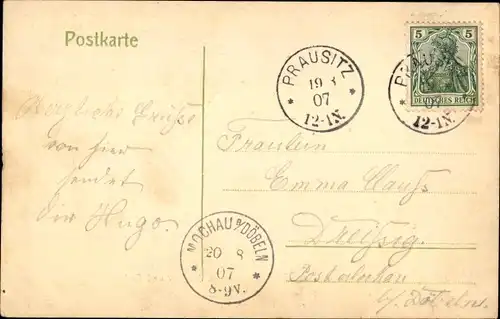 Postkarte
PRAUSITZ
19 8
07
12-1N.
5 5
DEUTSCHES REICH
PRAUSITZ
07
12-1N.
Herzliche Grüße
von hier
sendet
dir Hugo.
Fräulein
Emma Clauß
Dreißig.
Post Mochau
b/ Döbeln.
MOCHAU b/DÖBELN
20 8
07
8-9V.